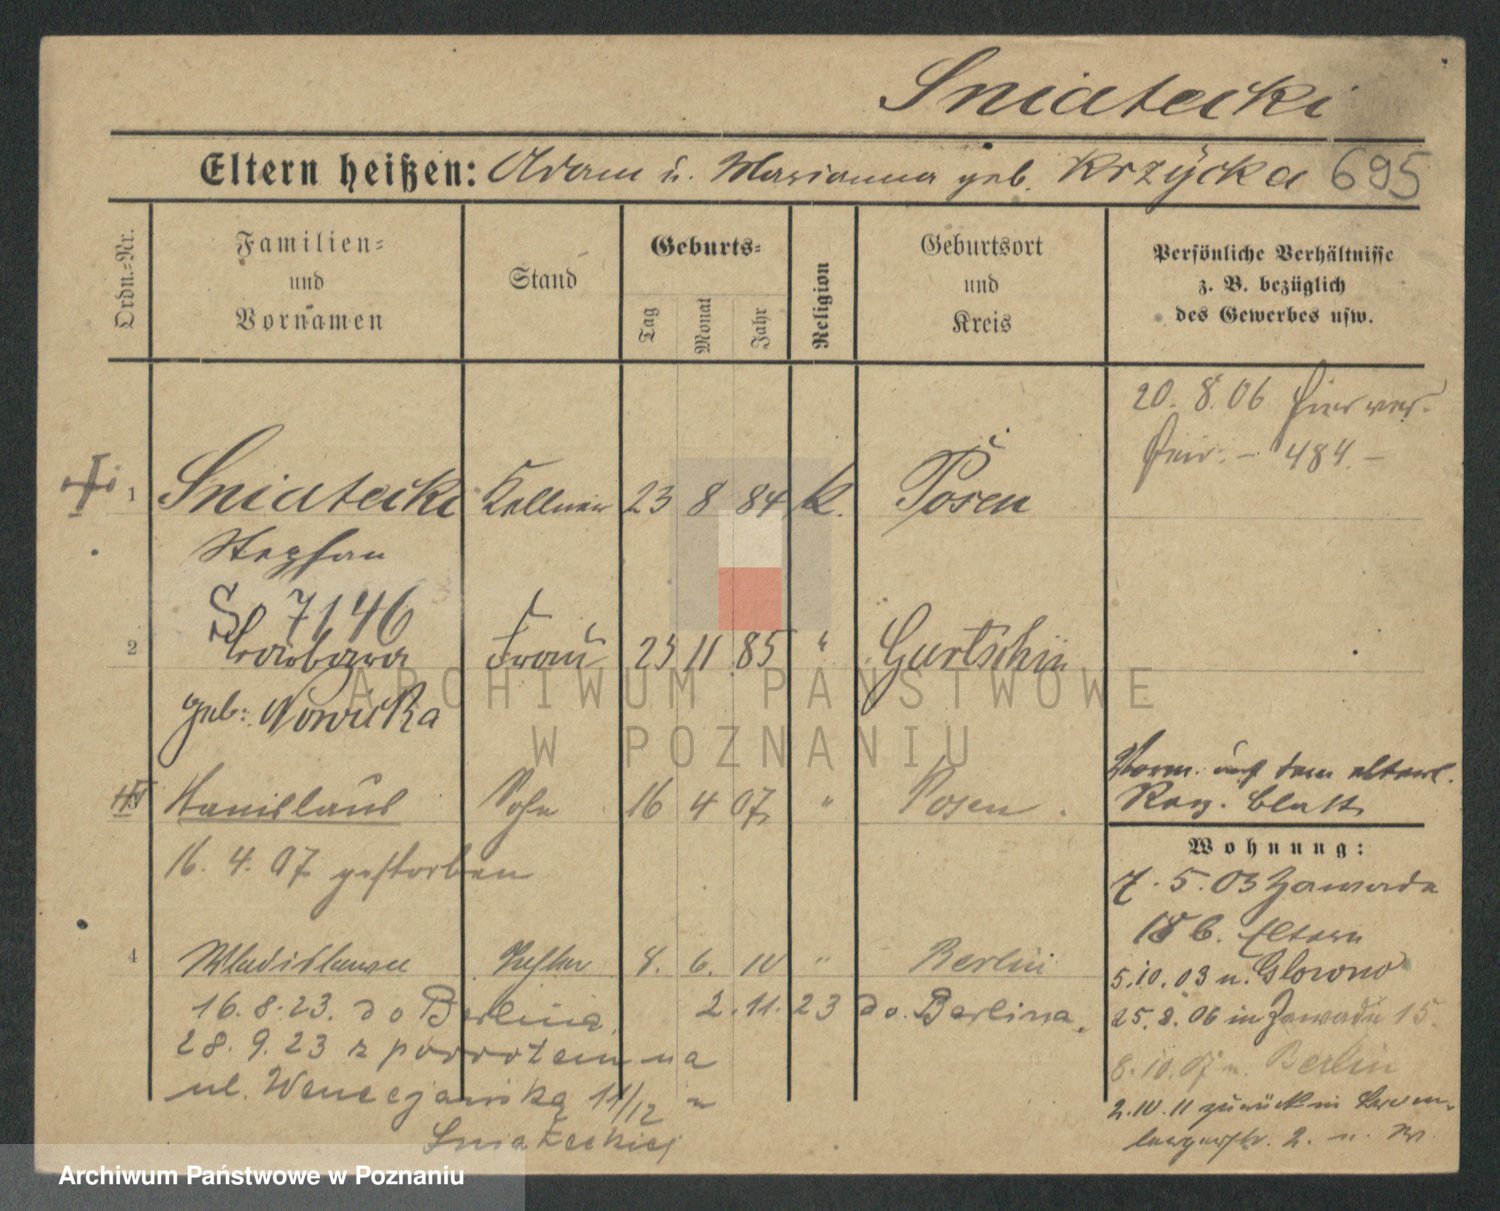 Sniatecki
Eltern heißen: Adam u. Marianna geb. Krzycka 695
Ordn.-Nr.
Familien- und Vornamen
Stand
Geburts-
Tag Monat Jahr
Religion
Geburtsort und Kreis
Persönliche Verhältnisse
z. B. bezüglich
des Gewerbes usw.
20. 8. 06 hier ver-
heir. - 484. -
1 Sniatecki Kellner 23 8 84 k. Posen
Stephan
S 7146
2 Barbara Frau 23 11 85 " Gurtschin
geb: Nowicka
Verm. auf dem elterl.
Reg. Blatt
3 Stanislaus Sohn 16 4 07 " Posen
16. 4. 07 gestorben
Wohnung:
7. 5. 03 Zawade
18 b. Eltern
5.10.03 n. Glowno
25. 8. 06 in Zawade 15.
8.10.07 n. Berlin
2.10.11 zurück
2. n.
4 Wladislawa Tochter 8. 6. 10 " Berlin
16.8.23. do Berlina. 2.11.23 do. Berlina.
28.9.23 z powrotem na
ul. Wenecjańską 11/12 u
Sniateckiej
ARCHIWUM PAŃSTWOWE
W POZNANIU
Archiwum Państwowe w Poznaniu